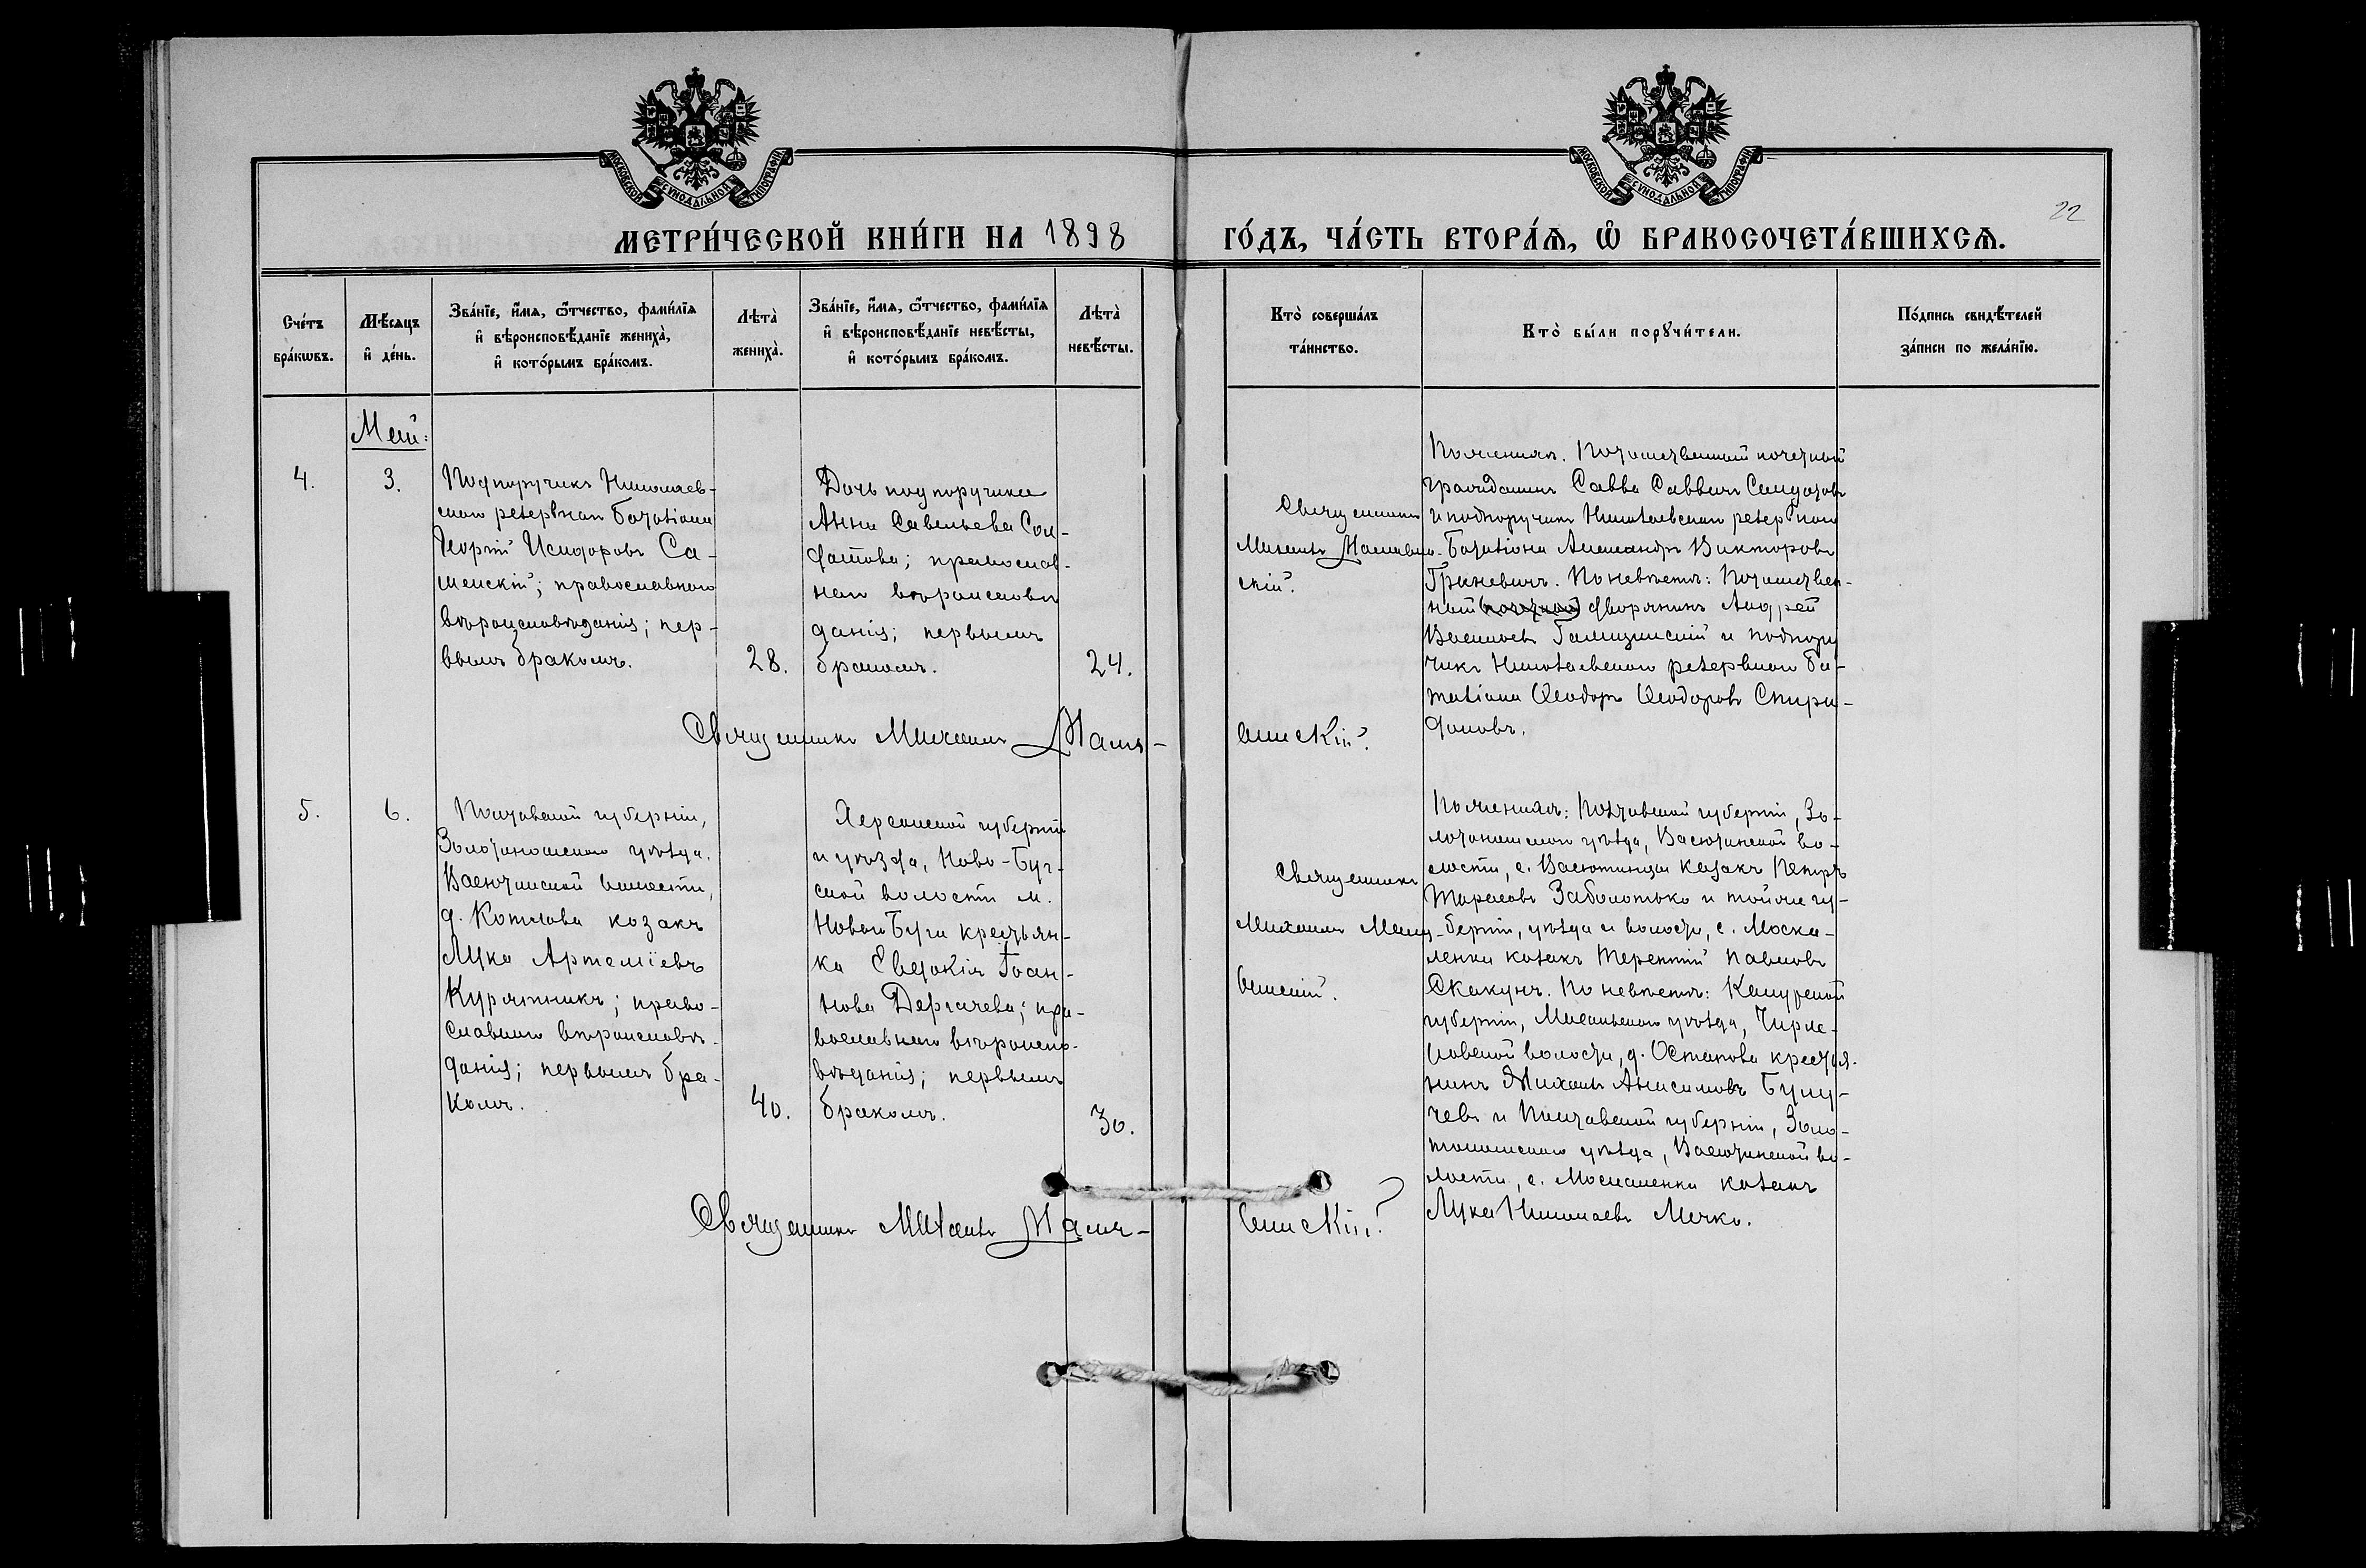 МОСКОВСКОЙ СѴНОДАЛЬНОЙ ТИПОГРАФІИ
МОСКОВСКОЙ СѴНОДАЛЬНОЙ ТИПОГРАФІИ
22
МЕТРИ́ЧЕСКОЙ КНИ́ГИ НА 1898 ГО́ДЪ, ЧА́СТЬ ВТОРА́Ѧ, Ѽ БРАКОСОЧЕТА́ВШИХСѦ.
Сче́тъ
бра́кѡвъ.
Мѣ́сяцъ
и҆ де́нь.
Зва́нїе, и҆́мѧ, ѻ҆́тчество, фами́лїѧ
и҆ вѣроисповѣ́данїе жениха̀,
и҆ кото́рымъ бра́комъ.
Лѣта̀
жениха̀.
Зва́нїе, и҆́мѧ, ѻ҆́тчество, фами́лїѧ
и҆ вѣроисповѣ́данїе невѣ́сты,
и҆ кото́рымъ бра́комъ.
Лѣта̀
невѣ́сты.
Кто̀ соверша́лъ
та́инство.
Кто̀ бы́ли порꙋчи́тели.
По́дпись свидѣ́телей
за́писи по жела́нїю.
Май:
4.
3.
Подпоручикъ Николаев-
скаго резервнаго баталіона
Георгій Исидоровъ Са-
шенскій; православнаго
вѣроисповѣданія; пер-
вымъ бракомъ.
28.
Дочь подпоручика
Анна Савельева Сол-
датова; православ-
наго вѣроисповѣ-
данія; первымъ
бракомъ.
24.
Священникъ
Михаилъ
скій.
По женихѣ: Потомственный почетный
гражданинъ Савва Саввичъ Солдатовъ
и подпоручикъ Николаевскаго резервнаго
баталіона Александръ Викторовъ
Гриневичъ. По невѣстѣ: Потомствен-
ный (почетный) дворянинъ Андрей
Васильевъ Галицинскій и подпору-
чикъ Николаевскаго резервнаго ба-
таліона Ѳеодоръ Ѳеодоровъ Спири-
доновъ.
Священникъ Михаилъ
5.
6.
Полтавской губерніи,
Золотоношскаго уѣзда,
Васютинской волости,
д. Котлова козакъ
Лука Артеміевъ
Курятникъ; право-
славнаго вѣроисповѣ-
данія; первымъ бра-
комъ.
40.
Херсонской губерніи
и уѣзда, Ново-Буг-
ской волости м.
Новаго Буга крестьян-
ка Евдокія Іоан-
нова Дергачева; пра-
вославнаго вѣроиспо-
вѣданія; первымъ
бракомъ.
30.
Священникъ
Михаилъ
По женихѣ: Полтавской губерніи, Зо-
лотоношскаго уѣзда, Васютинской во-
лости, с. Васютинцы казакъ Петръ
Тарасовъ Заболотько и той же гу-
берніи, уѣзда и волости, с. Моска-
ленки казакъ Терентій Павловъ
Скакунъ. По невѣстѣ: Калужской
губерніи, уѣзда,
волости, д. Остапова крестья-
нинъ Михаилъ Анисимовъ
и Полтавской губерніи, Золо-
тоношскаго уѣзда, Васютинской во-
лости, с. Москаленки казакъ
Лука Николаевъ Мячко.
Священникъ Михаилъ